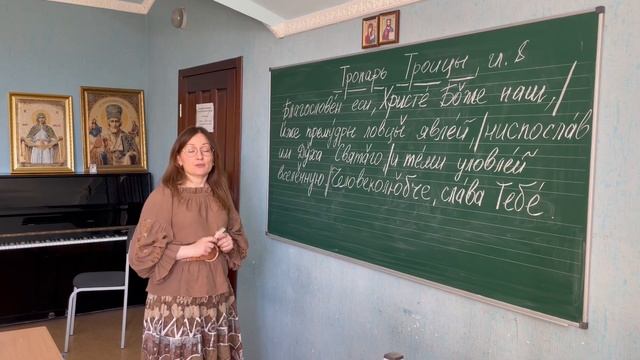 Тропарь Троицы, гл. 8
Благослове́н еси, Христе́ Бо́же наш, /
Иже прему́дры ловцы́ явле́й, / ниспосла́в
им Ду́ха Свята́го, / и те́ми уловле́й
вселе́нную, / Человеколю́бче, сла́ва Тебе́.